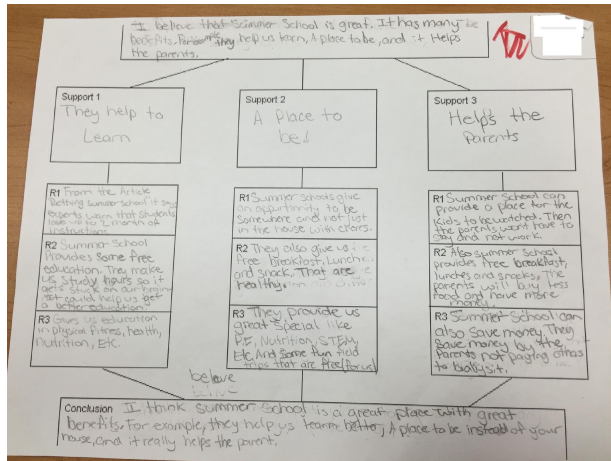 I believe that Summer School is great. It has many be
benefits. For example, they help us learn, A place to be, and it Helps
the parents.
Support 1
They help to
Learn
Support 2
A Place to
be!
Support 3
Helps the
Parents
R1 From the Article
summer school it say
experts warn that students
lose up to 2 month of
instructions
R2 Summer School
Provides some free
education. They make
us study hours so it
gets stuck on our brains
it could help us get
a better education
R3 Gives us education
in physical fitness, health,
Nutrition, Etc.
R1 Summer schools give
an opportunity to be
somewhere and not just
in the house with
R2 They also give us
free breakfast, Lunch
and snack, That are
healthy
R3 They provide us
great special like
P.E, Nutrition, STEM,
Etc. And some fun field
trips that are free (for us)
R1 Summer School can
provide a place for the
kids to be watched. Then
the parents wont have to
stay and not work
R2 Also summer School
provides free breakfast,
lunches and snacks, The
parents will buy less
food and have more
money
R3 Summer School can
also save money. They
save money by the
Parents not paying othas
to babysit.
beleve
Conclusion I think summer School is a great place with great
benefits. For example, they help us learn better, A place to be instead of your
house, and it really helps the parent.